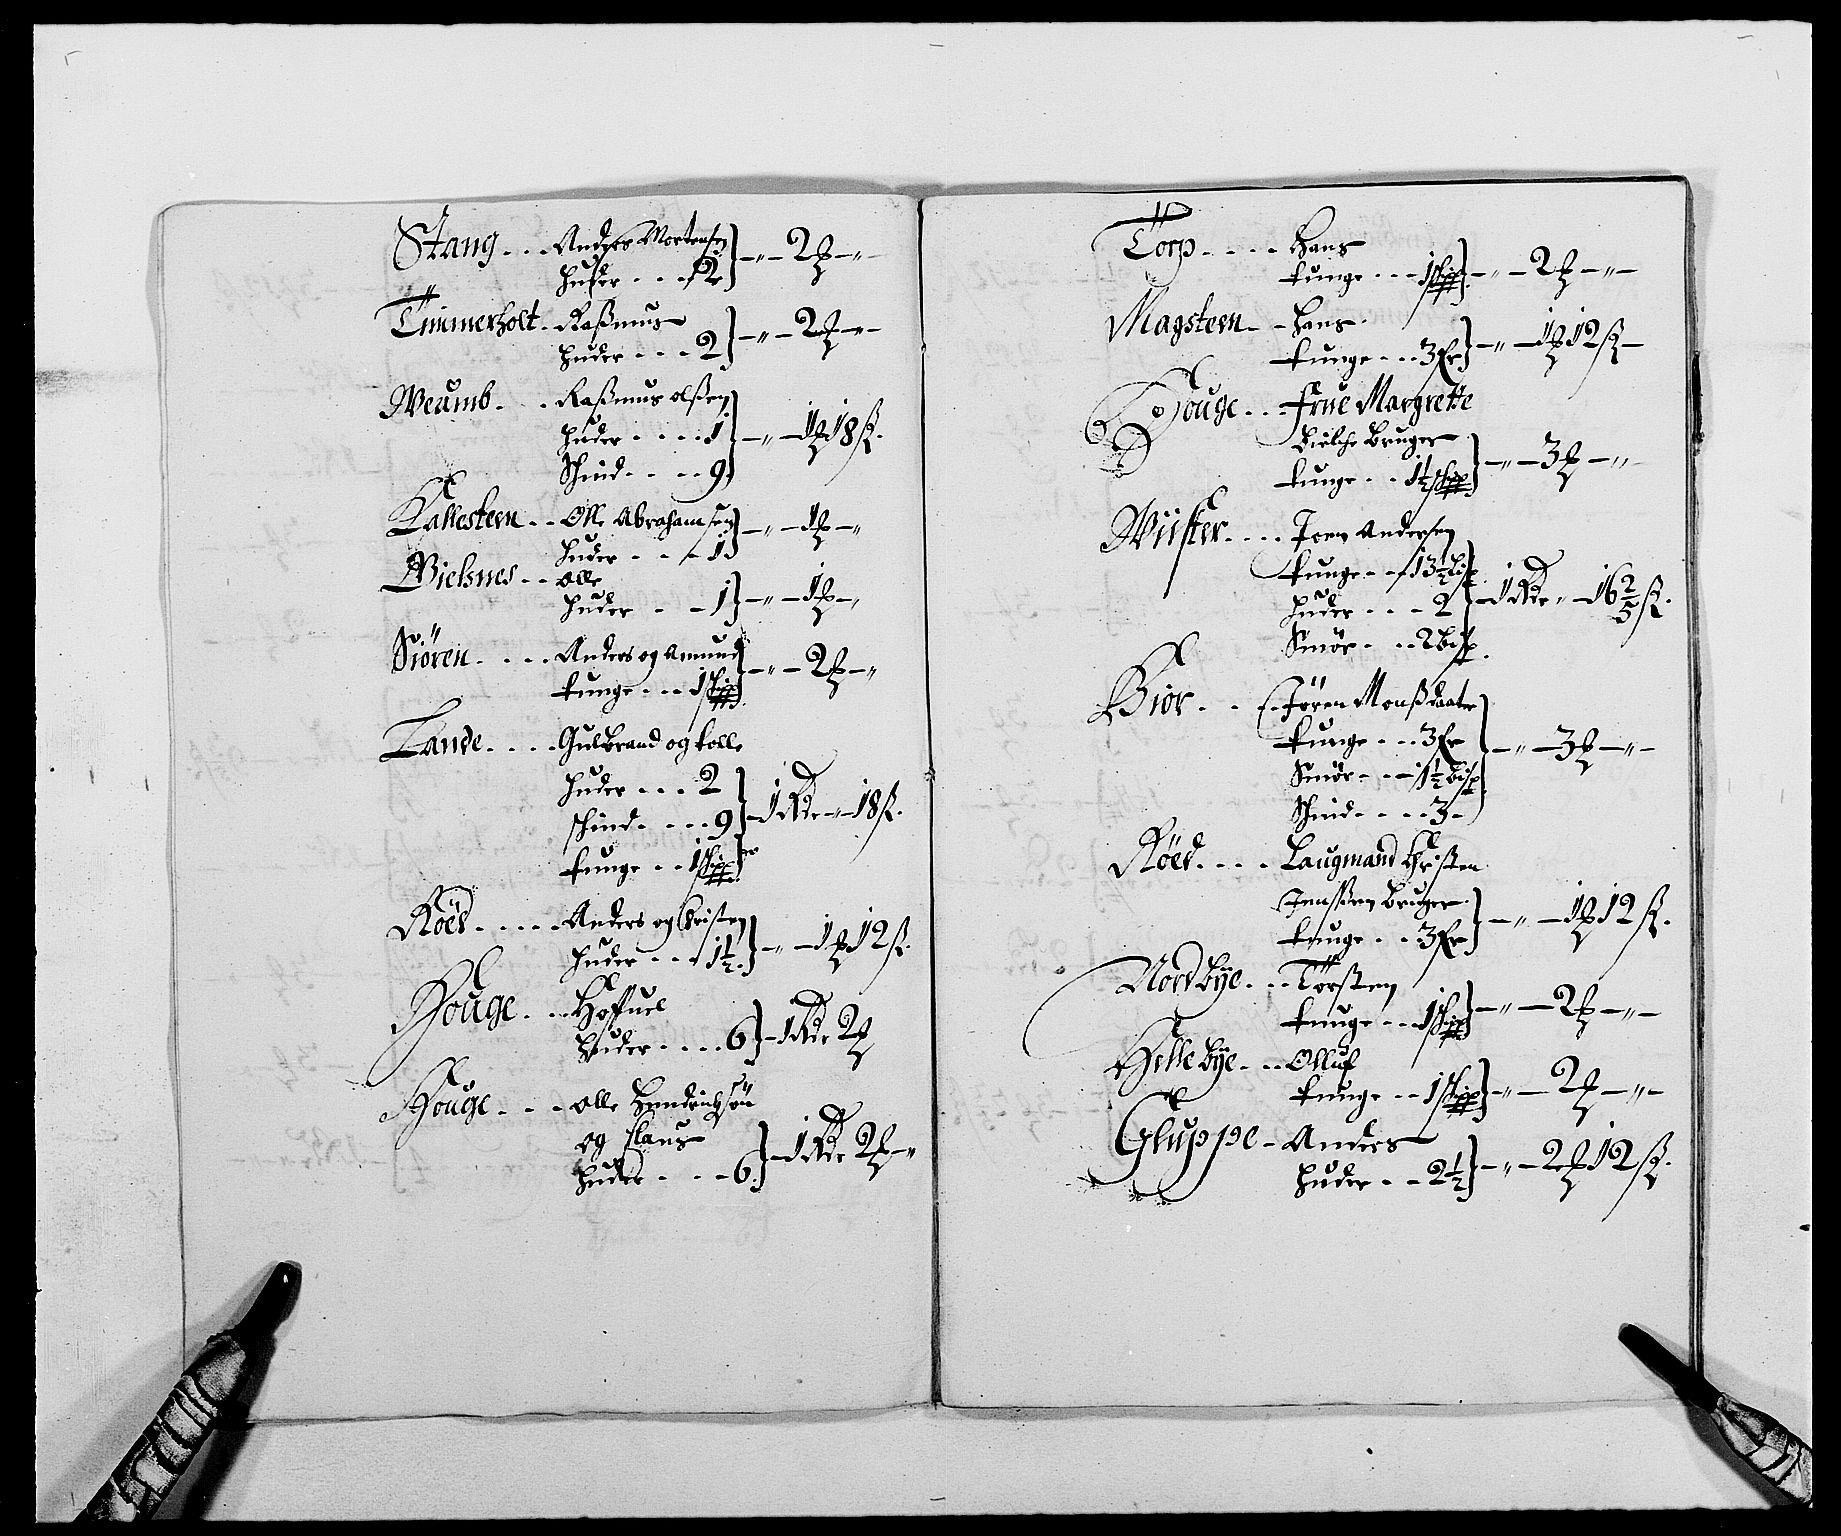 Stang . . . Anders Mortensen
huder . . . 2 } - " - 2 ℔ - " -
Timmerholt . Raßmus
huder . . . 2 } - " - 2 ℔ - " -
Weumb . . Raßmus olßen
huder . . . . 1
Schind . . . . 9 } - " - 1 ℔ 18 ß.
Kallesteen . . Olle Abrahamsen
huder . . . 1 } - " - 1 ℔ - "
Bielsnes . . olle
huder . . 1 } - " - 1 ℔ - "
Siören . . . . Anders og Amund
tunge . . . 1 skipp } - " - 2 ℔ - "
Lande . . . . Gulbrand og tolle
huder . . . 2
schind . . . . 9
tunge . . 1 skipp } - 1 Rdr - " - 18 ß.
Röed . . . . . Anders og Christen
huder . . . 1½ } - " - 1 ℔ 12 ß.
Houge . . . Hoffuel
Huder . . . . 6 } - 1 Rdr 2 ℔
Houge . . . olle Hendrichsön
og Claus
huder . . . - 6 } - 1 Rdr 2 ℔ - "
Torp . . . . Hans
tunge . . . 1 skipp } - " - 2 ℔ - " -
Magsteen - - hans
tunge . . . 3 fr } - " - 1 ℔ 12 ß -
Houge . . . Frue Margrette
Bruger
tunge . . 1½ skipp } - " - 3 ℔ - " -
. . . . Joen Andersen
tunge . . 13½ bisp
huder . . . 2
Smör . . . 2 bisp } - 1 Rdr " - 16 2/5 ß.
Biör . . . Jören Monßdaater
tunge . . . 3 fr
Smör - - - 1½ bisp
Schind . . . . 3 - } - " - 3 ℔ - " -
Röed . . . . Laugmand Christen
Jenßen Bruger
tunge . . . 3 fr } - " - 1 ℔ 12 ß.
Nordbÿe . . . Torsten
tunge . . . 1 skipp } - " - 2 ℔ - " -
Hellebÿe . . . Olluf
tunge . . 1 skipp } - " - 2 ℔ - " -
Gluppe - Anders
huder . . 2½ } - " - 2 ℔ 12 ß.